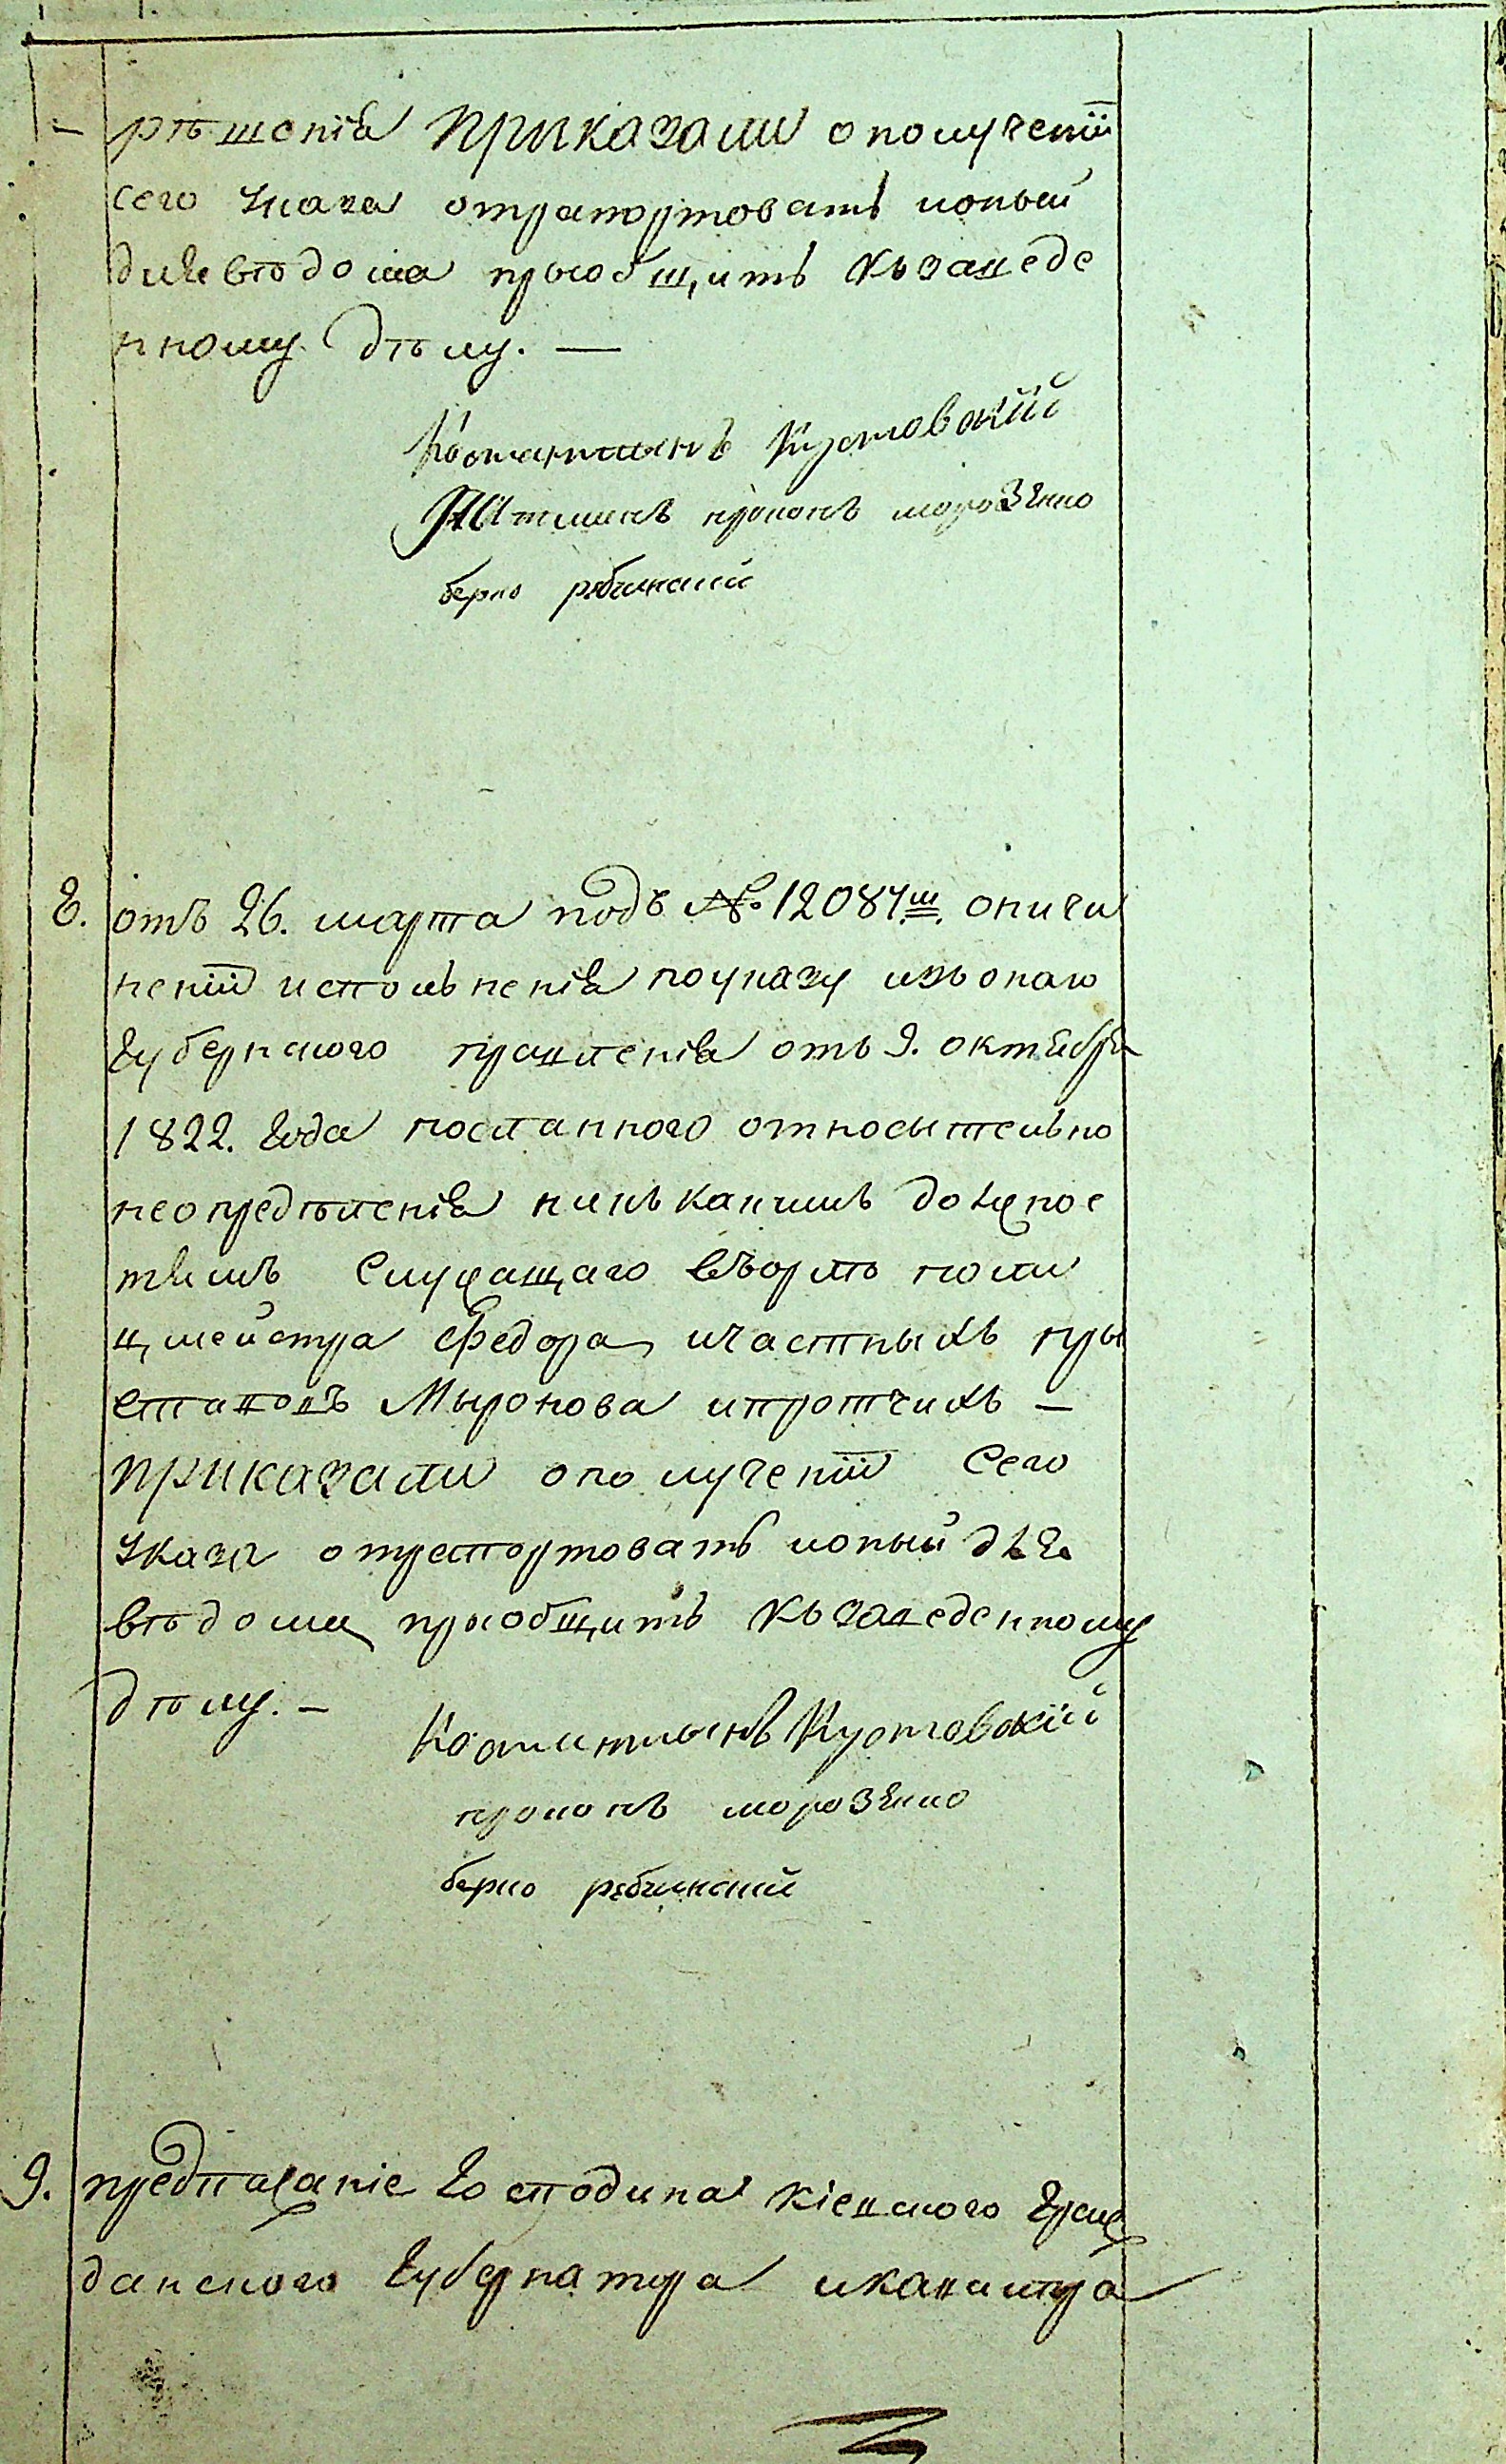 рѣшенія приказали о получениі
сего указа отрапортовать и оный
для вѣдома приобщить къ заведе
нному дѣлу. —
Костантинъ Кустовскій
прокопъ морозенко
берко рябчинский
8. отъ 26. марта подъ № 12084м. о учи
нениі исполненія по указу изъ онаго
Губернского правленія отъ 9. октября
1822. года посланного относытельно
неопредѣленія ни къ какимъ должнос
тямъ Служащаго въ Орлѣ поли
цмейстра Федора и частныхъ пры
ставовъ Мыронова и протчихъ —
приказали о получениі Сего
указа отрепортовать и оный для
вѣдома приобщить къ заведенному
дѣлу. —
Костантинъ Кустовскій
прокопъ морозенко
берко рябчинский
9. предписаніе Господина Кіевского Граж
данского Губернатора и кавалера